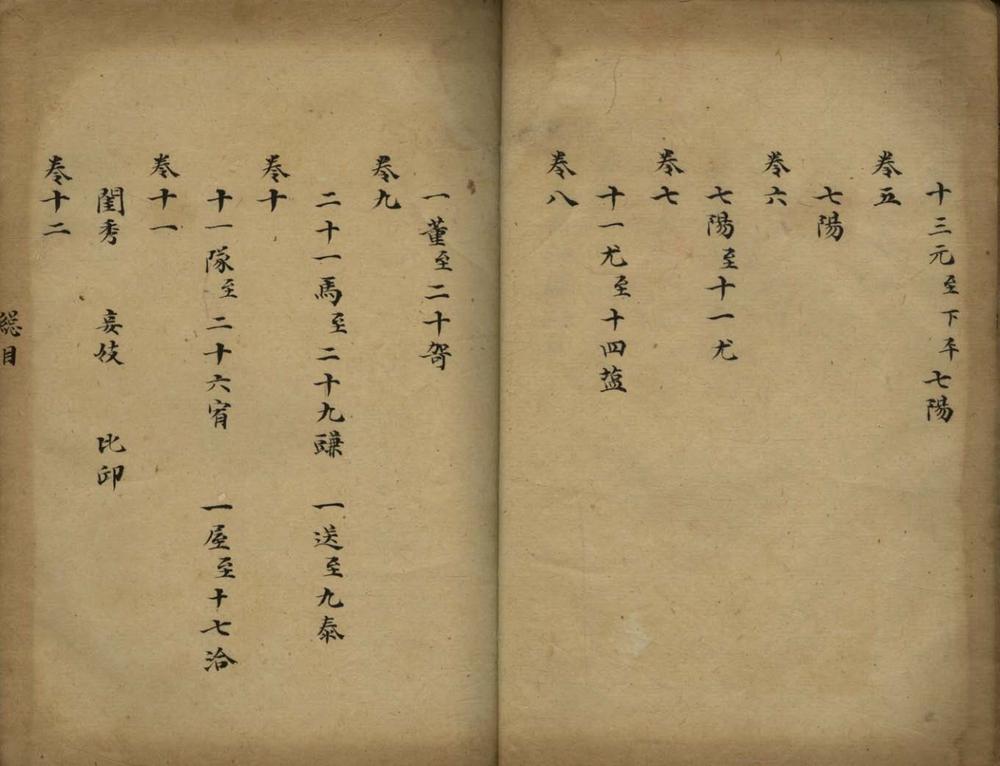 十三元至下平七陽
卷五
七陽
卷六
七陽至十一尤
卷七
十一尤至十四鹽
卷八
一董至二十哿
卷九
二十一馬至二十九豏 一送至九泰
卷十
十一隊至二十六宥 一屋至十七洽
卷十一
閨秀 妾妓 比邱
卷十二
総目